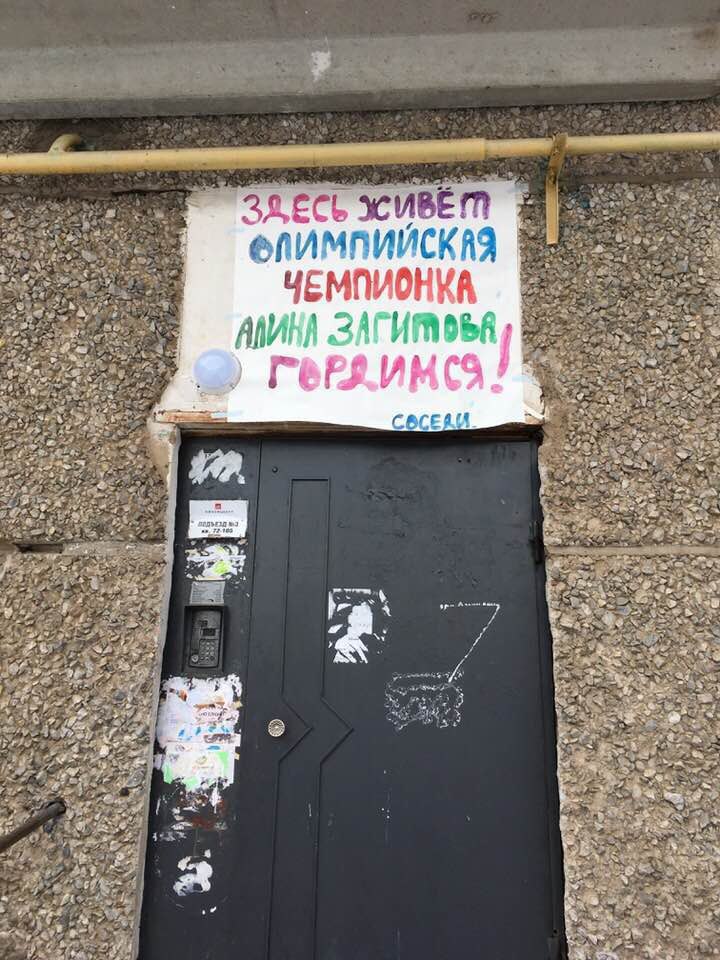 ЗДЕСЬ ЖИВЁТ
ОЛИМПИЙСКАЯ
ЧЕМПИОНКА
АЛИНА ЗАГИТОВА
ГОРДИМСЯ!
СОСЕДИ.
ПОДЪЕЗД №3
кв. 72-100